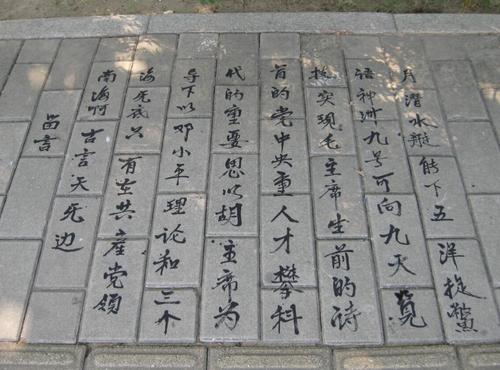 月潜水艇能下五洋捉鳖
语神州九号可向九天览
实现毛主席生前的诗
首的党中央重人才攀科
代的重要思以胡主席为
导下以邓小平理论和三个
海无只有在共産党领
南海啊古言天无边
留言